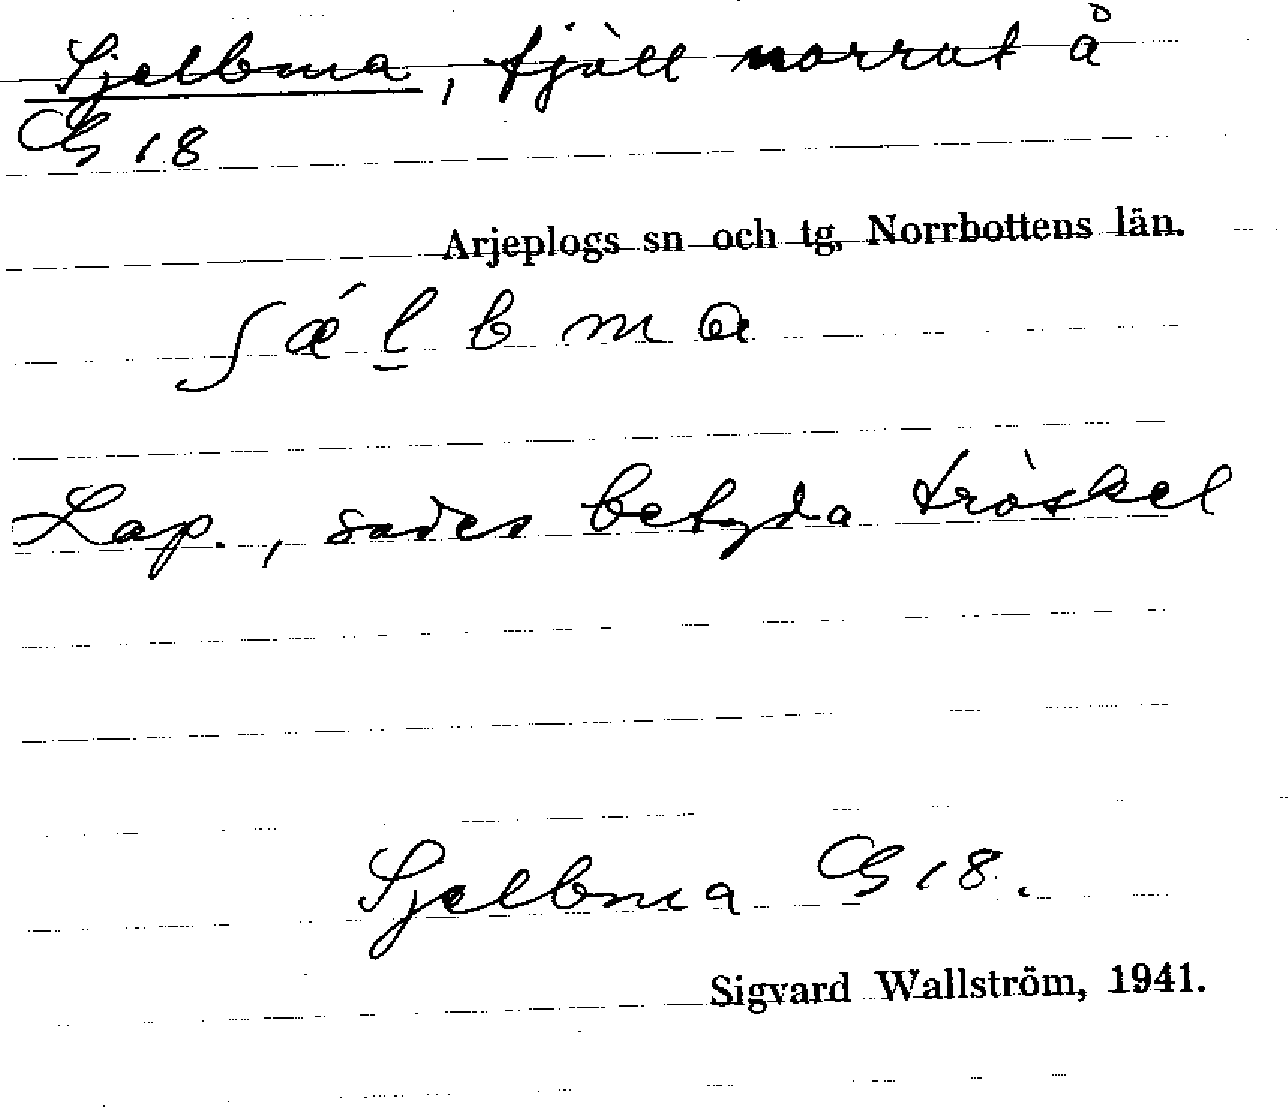 Sjelbma, fjäll norrut å
G 18
Arjeplogs sn och tg, Norrbottens län.
ʃ ǽ l̲ b m a
Lap., sades betyda tröskel
Sjelbma G 18.
Sigvard Wallström, 1941.